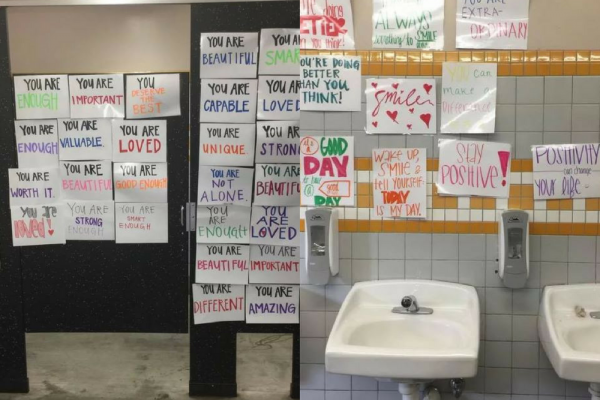 YOU ARE
ENOUGH
YOU ARE
IMPORTANT
YOU
DESERVE THE
BEST
YOU ARE
ENOUGH
YOU ARE
VALUABLE
YOU ARE
LOVED
YOU ARE
WORTH IT.
YOU ARE
BEAUTIFUL
YOU ARE
GOOD ENOUGH
YOU ARE
LOVED!
YOU ARE
STRONG
ENOUGH
YOU ARE
SMART
ENOUGH
YOU ARE
BEAUTIFUL
YOU ARE
SMAR
YOU ARE
CAPABLE
YOU ARE
LOVE
YOU ARE
UNIQUE
YOU ARE
STRON
YOU ARE
NOT
ALONE.
YOU ARE
BEAUTIF
YOU ARE
ENOUGH
YOU
ARE
LOVED
YOU ARE
BEAUTIFUL
YOU ARE
IMPORTANT
YOU ARE
DIFFERENT
YOU ARE
AMAZING
doing
BETTER
ALWAYS
something to SMILE
YOU ARE
EXTRA-
ORDINARY
YOU'RE DOING
BETTER
THAN YOU
THINK!
Smile
YOU can
make a
Difference
GOOD
DAY
YOU
DAY
WAKE UP,
SMILE &
tell YOURSELF
TODAY
IS MY DAY.
STAY
POSITIVE!
POSITIVITY
can change
YOUR life